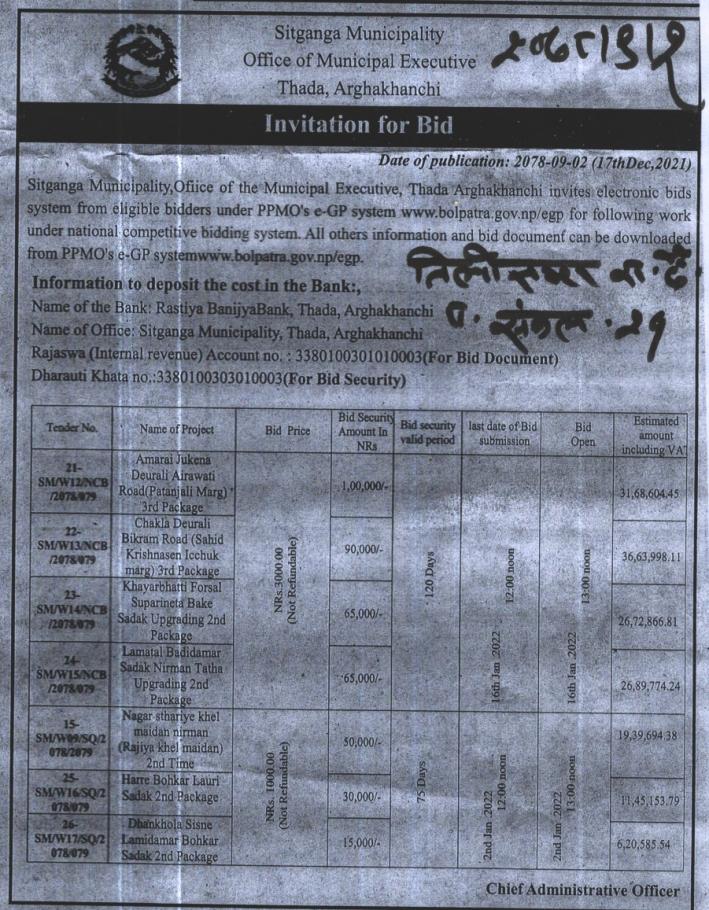 Sitganga Municipality
Office of Municipal Executive
Thada, Arghakhanchi
२०७८।९।२
Invitation for Bid
Date of publication: 2078-09-02 (17thDec,2021)
Sitganga Municipality,Ofiice of the Municipal Executive, Thada Arghakhanchi invites electronic bids
system from eligible bidders under PPMO's e-GP system www.bolpatra.gov.np/egp for following work
under national competitive bidding system. All others information and bid document can be downloaded
from PPMO's e-GP systemwww.bolpatra.gov.np/egp.
Information to deposit the cost in the Bank:,
Name of the Bank: Rastiya BanijyaBank, Thada, Arghakhanchi
Name of Office: Sitganga Municipality, Thada, Arghakhanchi
Rajaswa (Internal revenue) Account no. : 3380100301010003(For Bid Document)
Dharauti Khata no.:3380100303010003(For Bid Security)
Tender No. Name of Project Bid Price Bid Security Amount In NRs Bid security valid period last date of Bid submission Bid Open Estimated amount including VA
21-
SM/W12/NCB
/2078/079
Amarai Jukena
Deurali Airawati
Road(Patanjali Marg)
3rd Package
1,00,000/-
31,68,604.45
22-
SM/W13/NCB
/2078/079
Chakla Deurali
Bikram Road (Sahid
Krishnasen Icchuk
marg) 3rd Package
90,000/-
36,63,998.11
23-
SM/W14/NCB
/2078/079
Khayarbhatti Forsal
Suparineta Bake
Sadak Upgrading 2nd
Package
65,000/-
26,72,866.81
24-
SM/W15/NCB
/2078/079
Lamatal Badidamar
Sadak Nirman Tatha
Upgrading 2nd
Package
65,000/-
26,89,774.24
NRs.3000.00
(Not Refundable)
120 Days
16th Jan ,2022 12:00 noon
16th Jan ,2022 13:00 noon
15-
SM/W09/SQ/2
078/2079
Nagar sthariye khel
maidan nirman
(Rajiya khel maidan)
2nd Time
50,000/-
19,39,694.38
25-
SM/W16/SQ/2
078/079
Harre Bohkar Lauri
Sadak 2nd Package
30,000/-
11,45,153.79
26-
SM/W17/SQ/2
078/079
Dhankhola Sisne
Lamidamar Bohkar
Sadak 2nd Package
15,000/-
6,20,585.54
NRs. 1000.00
(Not Refundable)
75 Days
2nd Jan ,2022
12:00 noon
2nd Jan ,2022
13:00 noon
Chief Administrative Officer